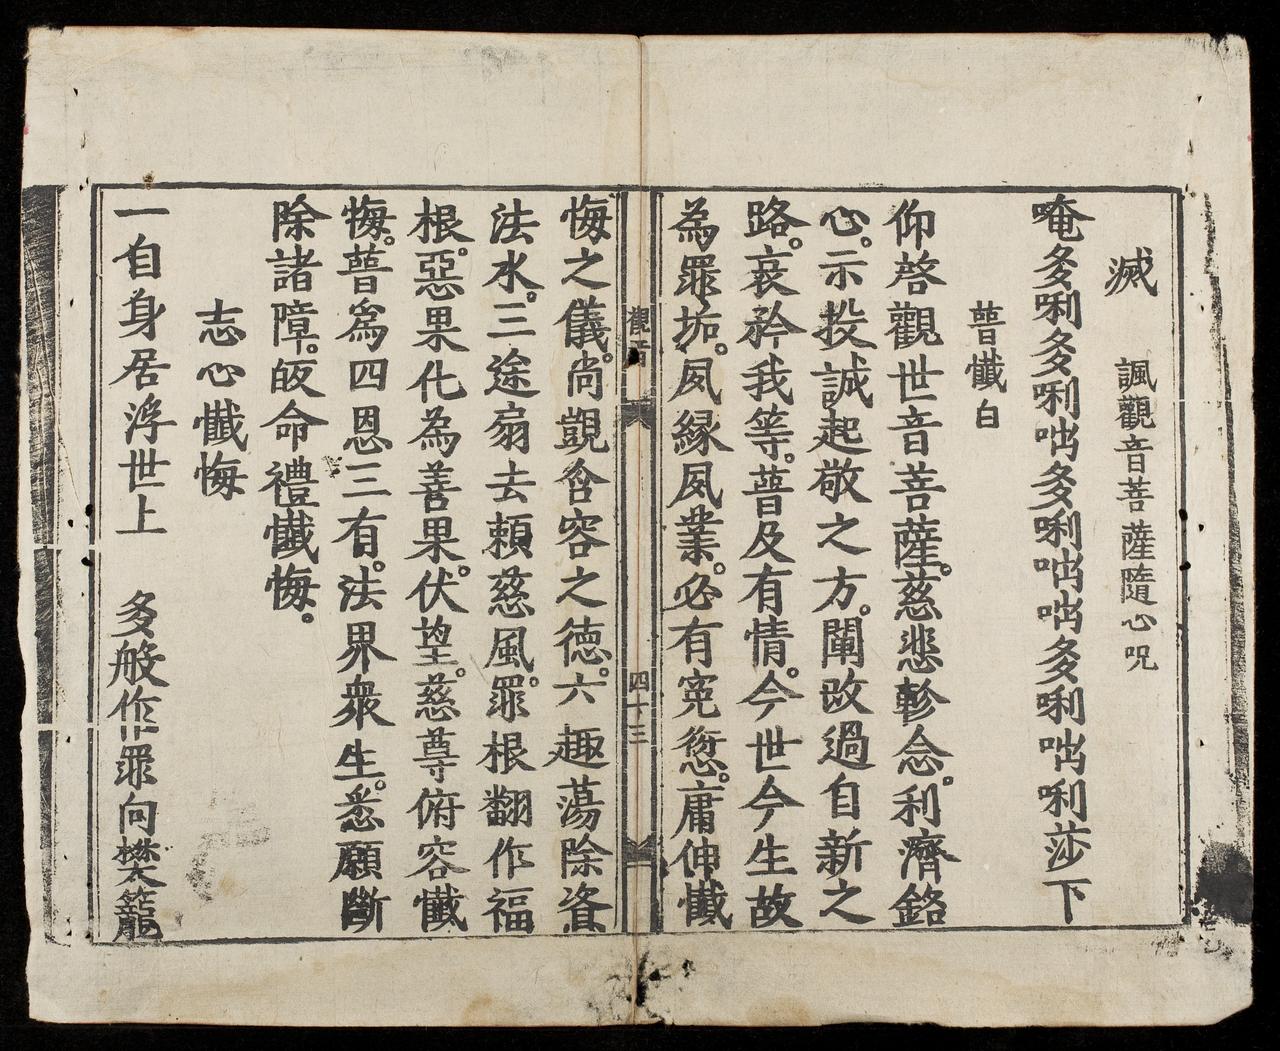 滅　諷觀音菩薩隨心咒
唵多唎多唎咄多唎咄咄多唎咄唎莎下
普懺白
仰啓觀世音菩薩。慈悲軫念。利濟銘
心。示投誠起敬之方。闡改過自新之
路。哀矜我等。普及有情。今世今生故
為罪垢。夙緣夙業。必有寃愆。庸伸懺
觀音
四十三
悔之儀。尚覬含容之德。六趣蕩除資
法水。三途扇去頼慈風。罪根翻作福
根。惡果化為善果。伏望。慈尊俯容懺
悔。普爲四恩三有。法界衆生。悉願斷
除諸障。皈命禮懺悔。
志心懺悔
一自身居浮世上　多般作罪向樊籠